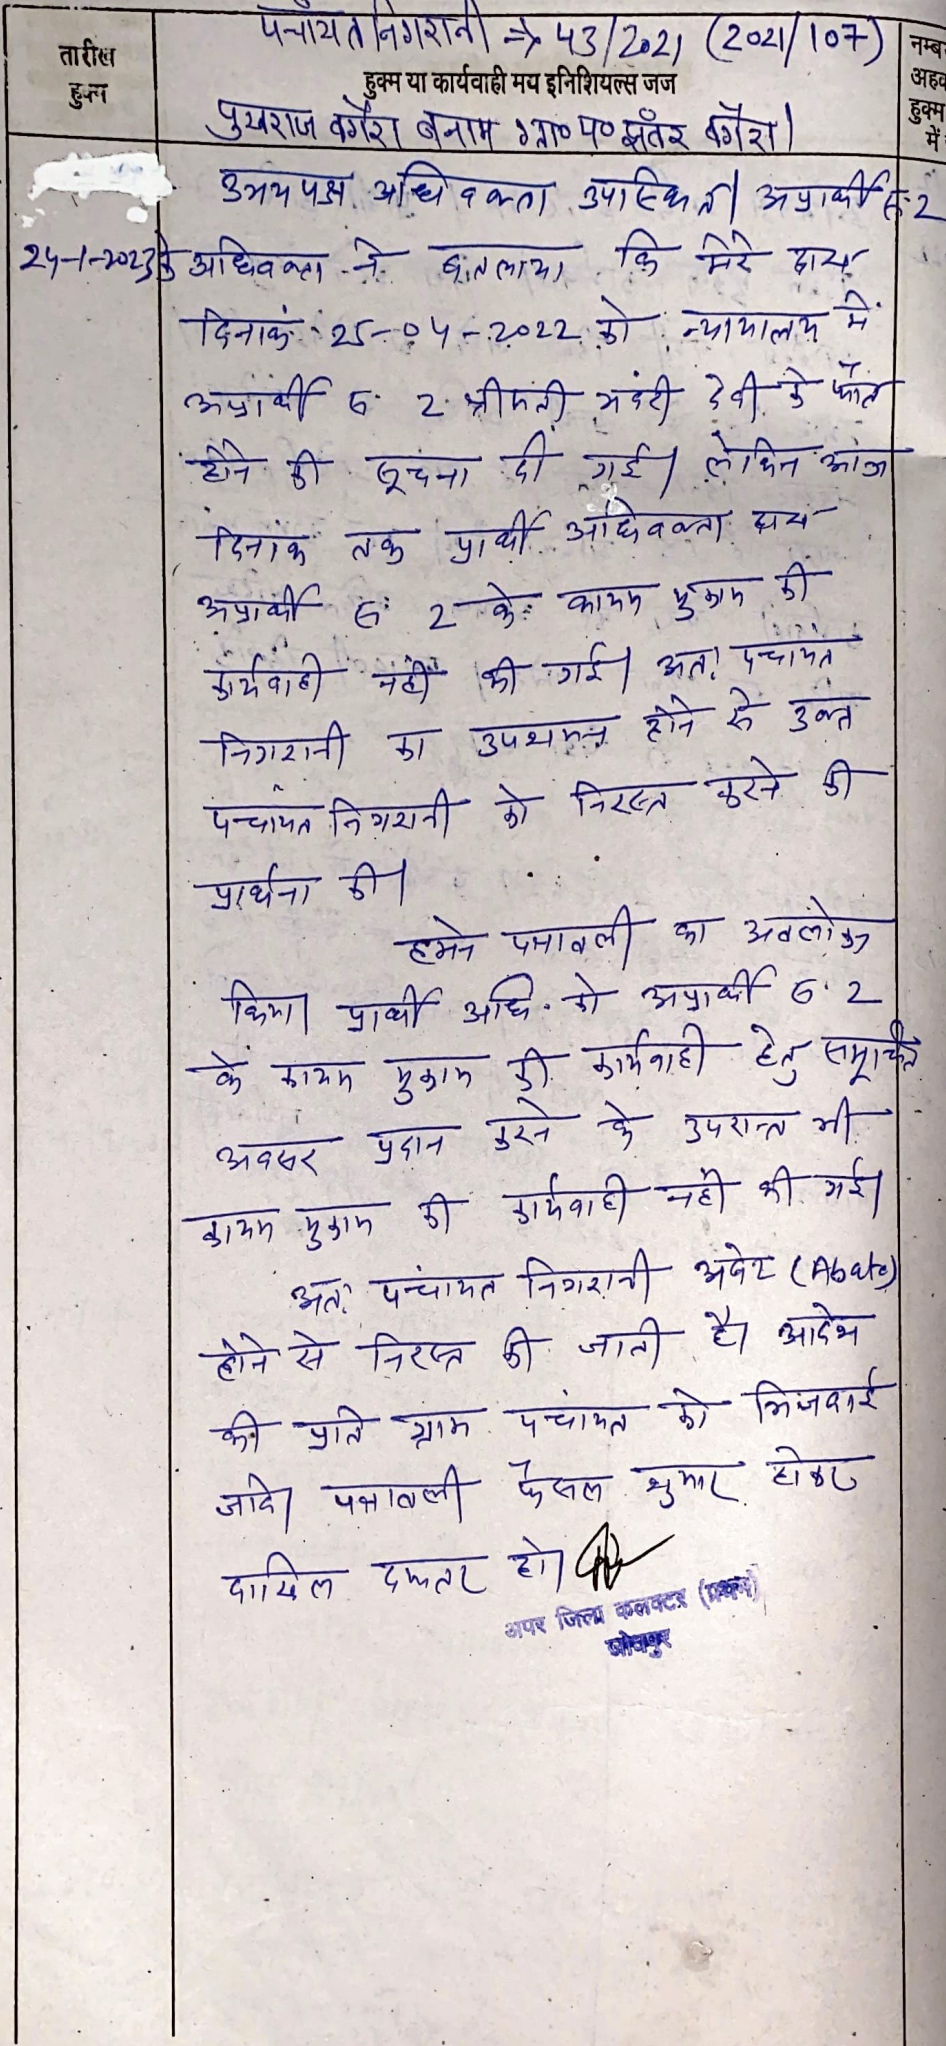 पंचायत निगरानी → 43/2021 (2021/107)
तारीख हुक्म
हुक्म या कार्यवाही मय इनिशियल्स जज
नम्ब
अहक
हुक्म
में
पुखराज वगैरा बनाम ग्रा० पं० झंवर वगैरा।
उभयपक्ष अधिवक्ता उपस्थित। अप्रार्थी सं. 2
24-1-2023 के अधिवक्ता ने बतलाया कि मेरे द्वारा
दिनांक 25-04-2022 को न्यायालय में
अप्रार्थी सं. 2 श्रीमती भंवरी देवी के फौत
होने की सूचना दी गई। लेकिन आज
दिनांक तक प्रार्थी अधिवक्ता द्वारा
अप्रार्थी सं. 2 के कायम मुकाम की
कार्यवाही नहीं की गई। अतः पंचायत
निगरानी का उपशमन होने से उक्त
पंचायत निगरानी को निरस्त करने की
प्रार्थना की।
हमने पत्रावली का अवलोकन
किया। प्रार्थी अधि. को अप्रार्थी सं. 2
के कायम मुकाम की कार्यवाही हेतु समूचित
अवसर प्रदान करने के उपरान्त भी
कायम मुकाम की कार्यवाही नहीं की गई।
अतः पंचायत निगरानी अबेट (Abate)
होने से निरस्त की जाती है। आदेश
की प्रति ग्राम पंचायत को भिजवाई
जावे। पत्रावली फैसल शुमार होकर
दाखिल दफ्तर हो।
अपर जिला कलक्टर (प्रथम)
जोधपुर